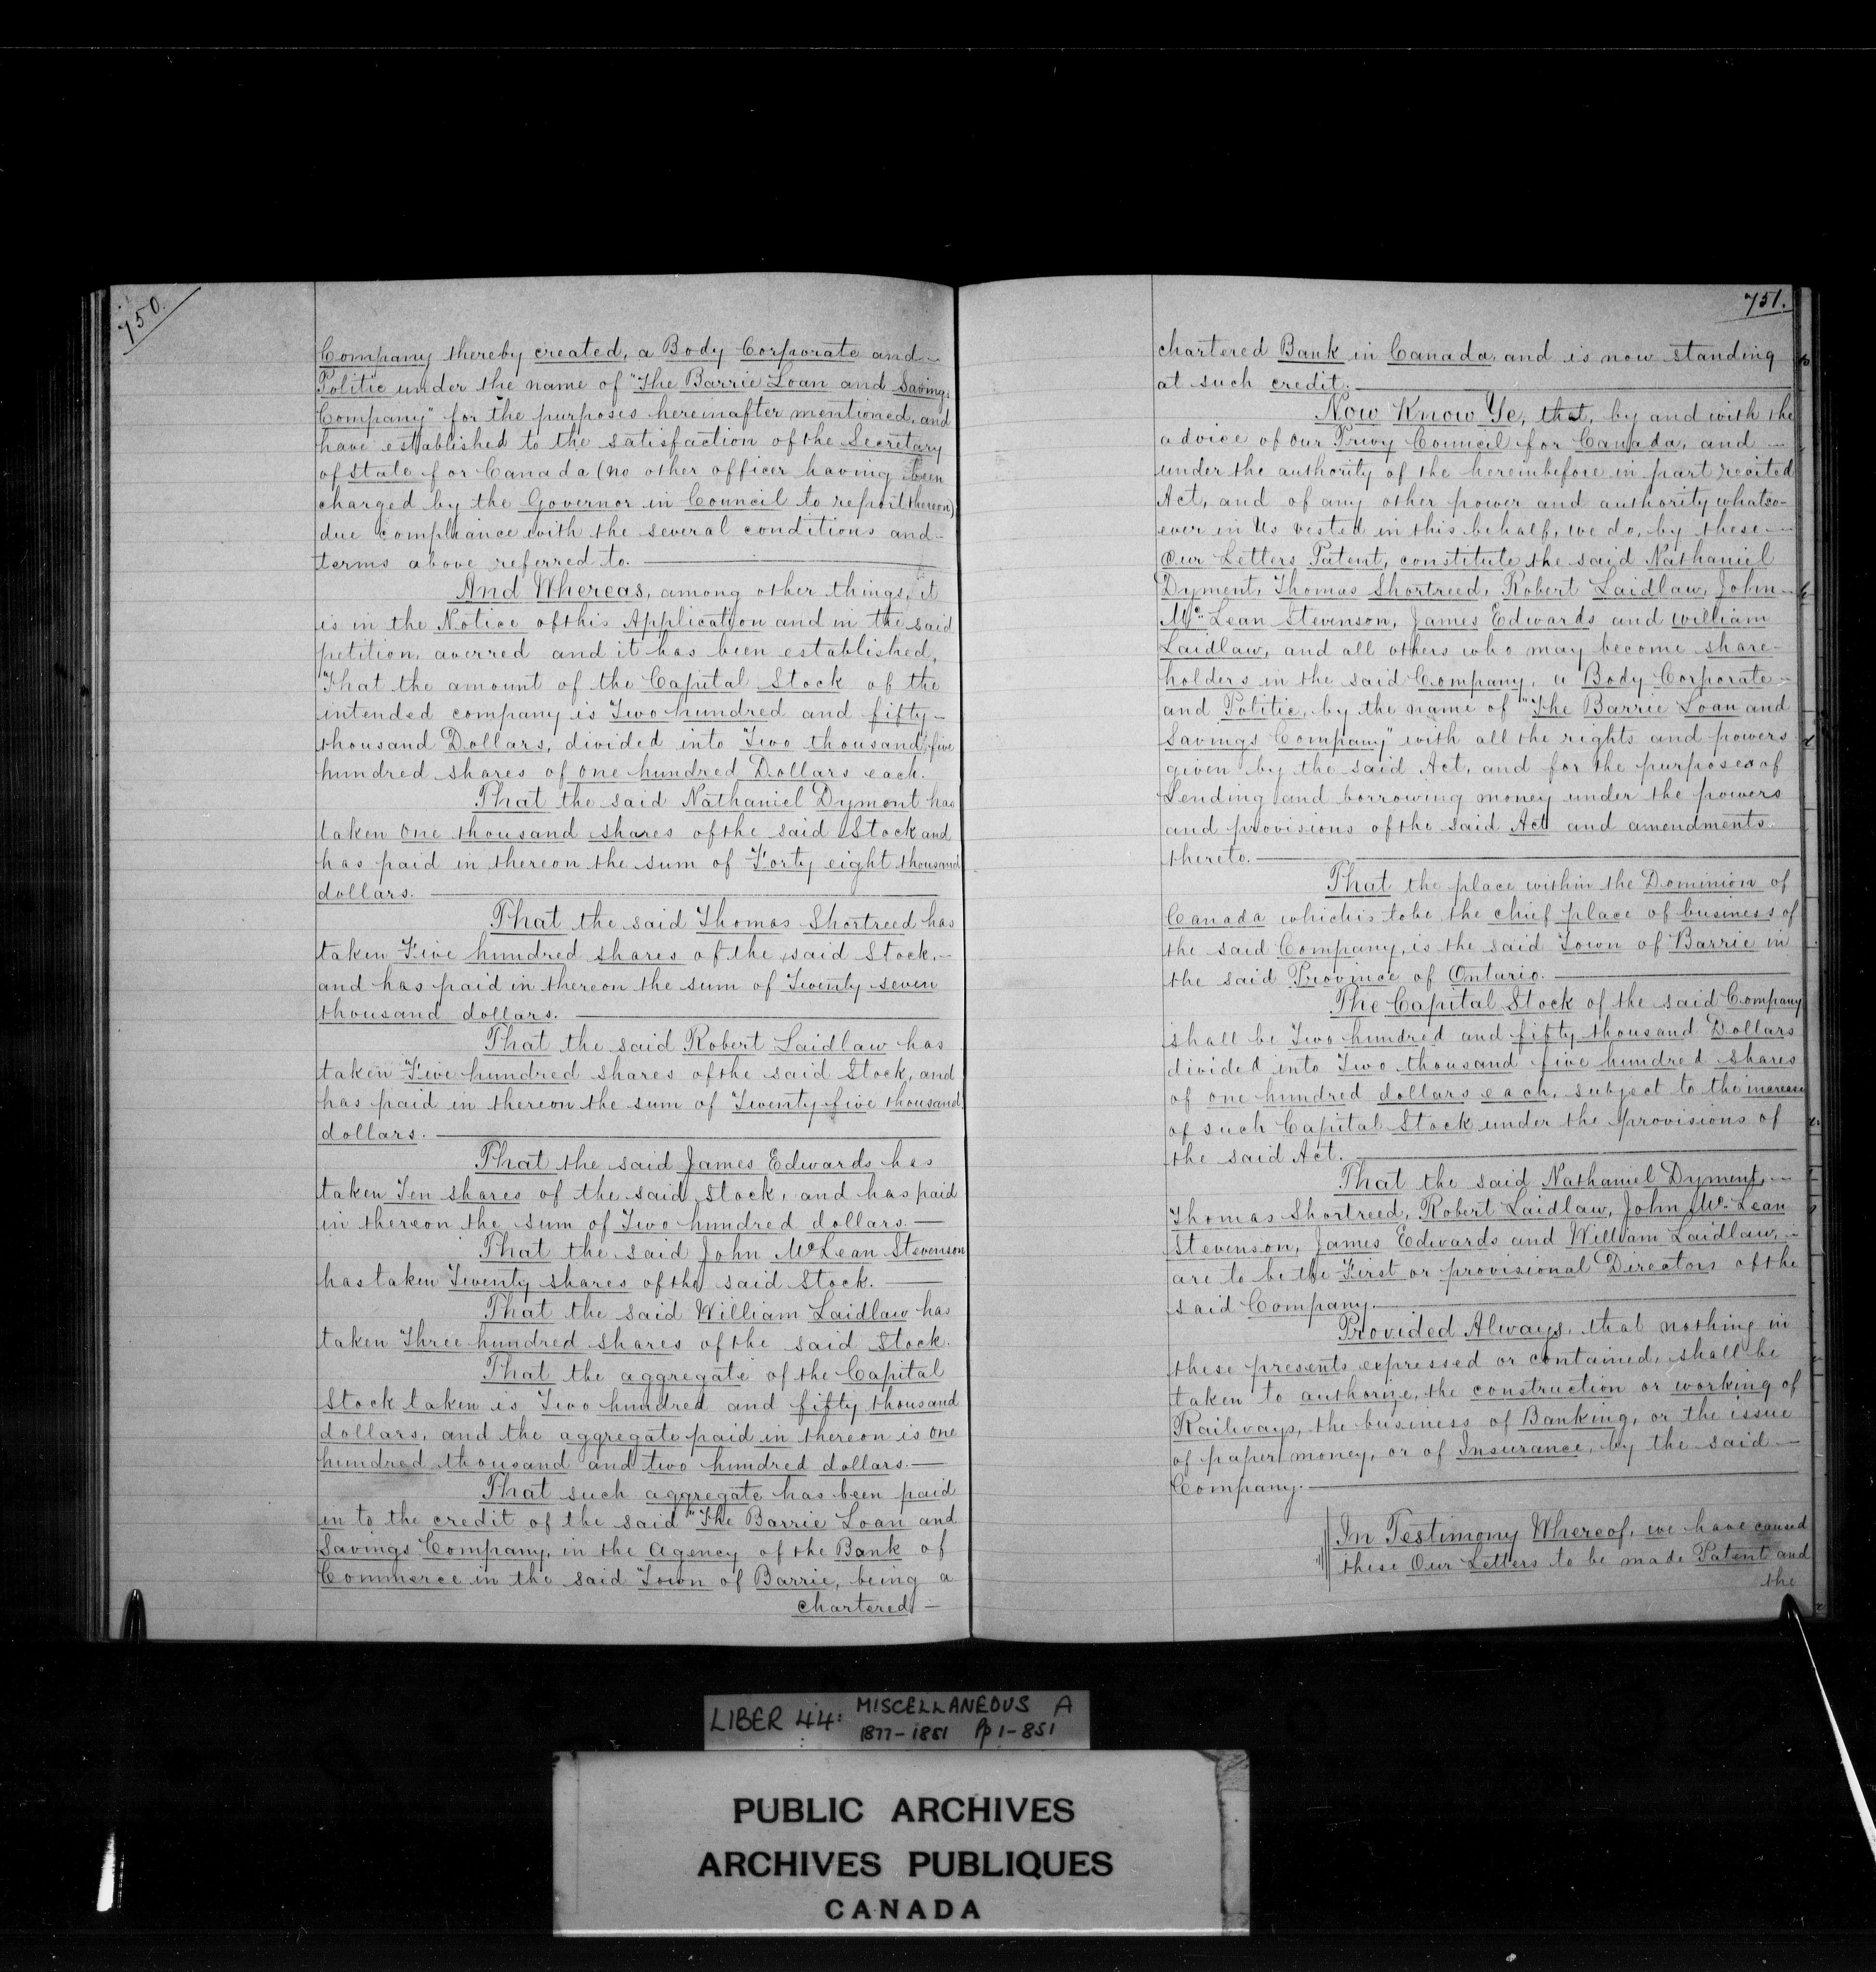 750.
Company thereby created, a Body Corporate and—
Politic under the name of "The Barrie Loan and Savings
Company" for the purposes hereinafter mentioned, and
have established to the satisfaction of the Secretary
of State for Canada (no other officer having been
charged by the Governor in Council to report thereon)
due compliance with the several conditions and—
terms above referred to.
And Whereas, among other things, it
is in the Notice of this Application and in the said
petition, averred and it has been established,
That the amount of the Capital Stock of the
intended company is Two hundred and fifty—
thousand Dollars, divided into Two thousand, five
hundred shares of one hundred Dollars each.
That the said Nathaniel Dyment has
taken One thousand shares of the said Stock and
has paid in thereon the sum of Forty eight thousand
dollars.
That the said Thomas Shortreed has
taken Five hundred shares of the said Stock,—
and has paid in thereon the sum of Twenty seven
thousand dollars.
That the said Robert Laidlaw has
taken Five hundred shares of the said Stock, and
has paid in thereon the sum of Twenty five thousand
dollars.
That the said James Edwards has
taken Ten shares of the said Stock, and has paid
in thereon the sum of Two hundred dollars.—
That the said John McLean Stevenson
has taken Twenty shares of the said Stock.
That the said William Laidlaw has
taken Three hundred shares of the said Stock.
That the aggregate of the Capital
Stock taken is Two hundred and fifty thousand
dollars, and the aggregate paid in thereon is one
hundred thousand and two hundred dollars.—
That such aggregate has been paid
in to the credit of the said "The Barrie Loan and
Savings Company, in the Agency of the Bank of
Commerce in the said Town of Barrie, being a
chartered—
751.
chartered Bank in Canada, and is now standing
at such credit.
Now Know Ye, that, by and with the
advice of Our Privy Council for Canada, and—
under the authority of the hereinbefore in part recited
Act, and of any other power and authority whatso-
ever in Us vested in this behalf, we do, by these—
Our Letters Patent, constitute the said Nathaniel
Dyment, Thomas Shortreed, Robert Laidlaw, John—
McLean Stevenson, James Edwards and William
Laidlaw, and all others who may become share-
holders in the said Company, a Body Corporate—
and Politic, by the name of "The Barrie Loan and
Savings Company" with all the rights and powers
given by the said Act, and for the purposes of
Lending and borrowing money under the powers
and provisions of the said Act and amendments
thereto.
That the place within the Dominion of
Canada which is to be the chief place of business of
the said Company, is the said Town of Barrie in
the said Province of Ontario.
The Capital Stock of the said Company
shall be Two hundred and fifty thousand Dollars
divided into Two thousand five hundred shares
of one hundred dollars each, subject to the increase
of such Capital Stock under the provisions of
the said Act.
That the said Nathaniel Dyment,—
Thomas Shortreed, Robert Laidlaw, John McLean
Stevenson, James Edwards and William Laidlaw,—
are to be the First or provisional Directors of the
said Company.
Provided Always, that nothing in
these presents expressed or contained, shall be
taken to authorize, the construction or working of
Railways, the business of Banking, or the issue
of paper money, or of Insurance, by the said—
Company.
In Testimony Whereof, we have caused
these Our Letters to be made Patent and
the
LIBER 44: MISCELLANEOUS A
1877-1881 Pp 1-851
PUBLIC ARCHIVES
ARCHIVES PUBLIQUES
CANADA